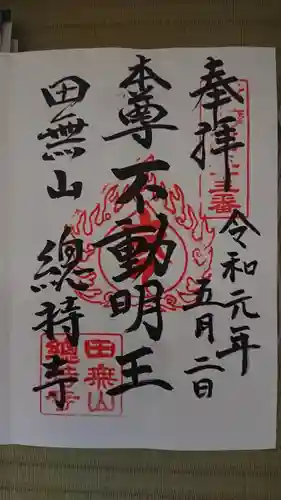 奉拝
令和元年
五月二日
本尊
不動明王
田無山
總持寺
田無山
總持寺